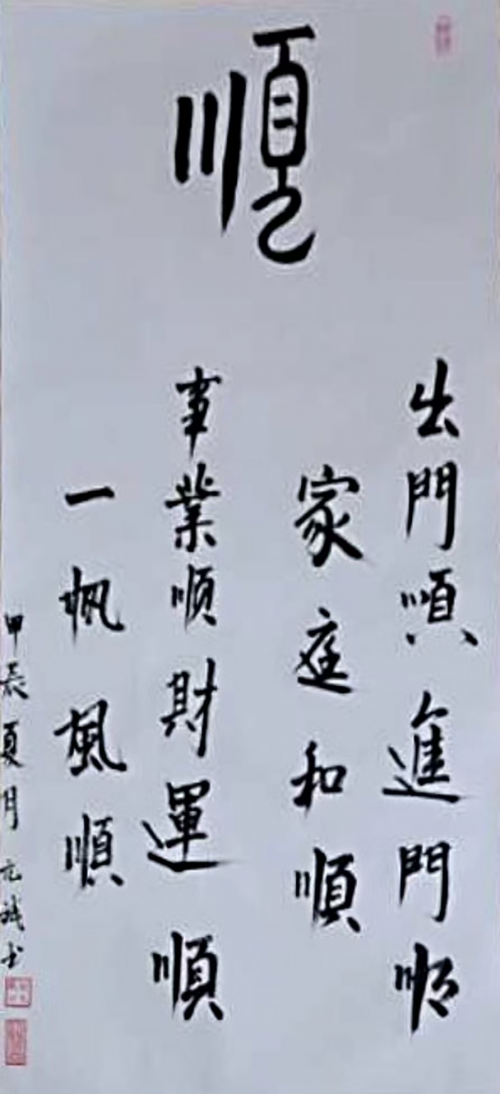 順
出門順進門順
家庭和順
事業順財運順
一帆風順
甲辰夏月元城书